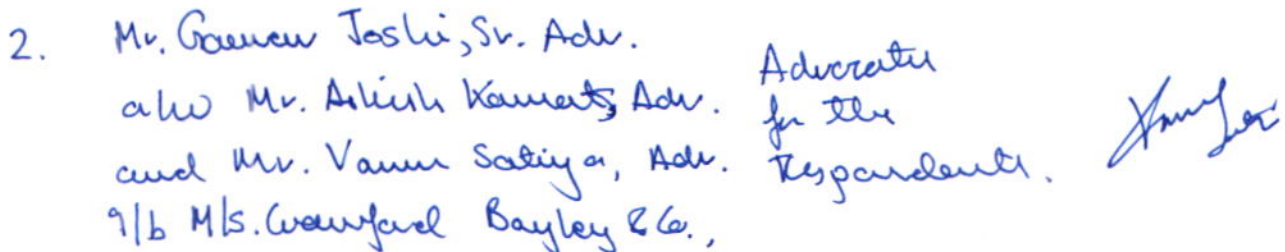 2. Mr. Gaurav Joshi, Sr. Adv.
a/w Mr. Ashish Kamat, Adv.
and Mr. Varun Satiya, Adv.
i/b M/s. Crawford Bayley & Co.,
Advocates
for the
Respondents.